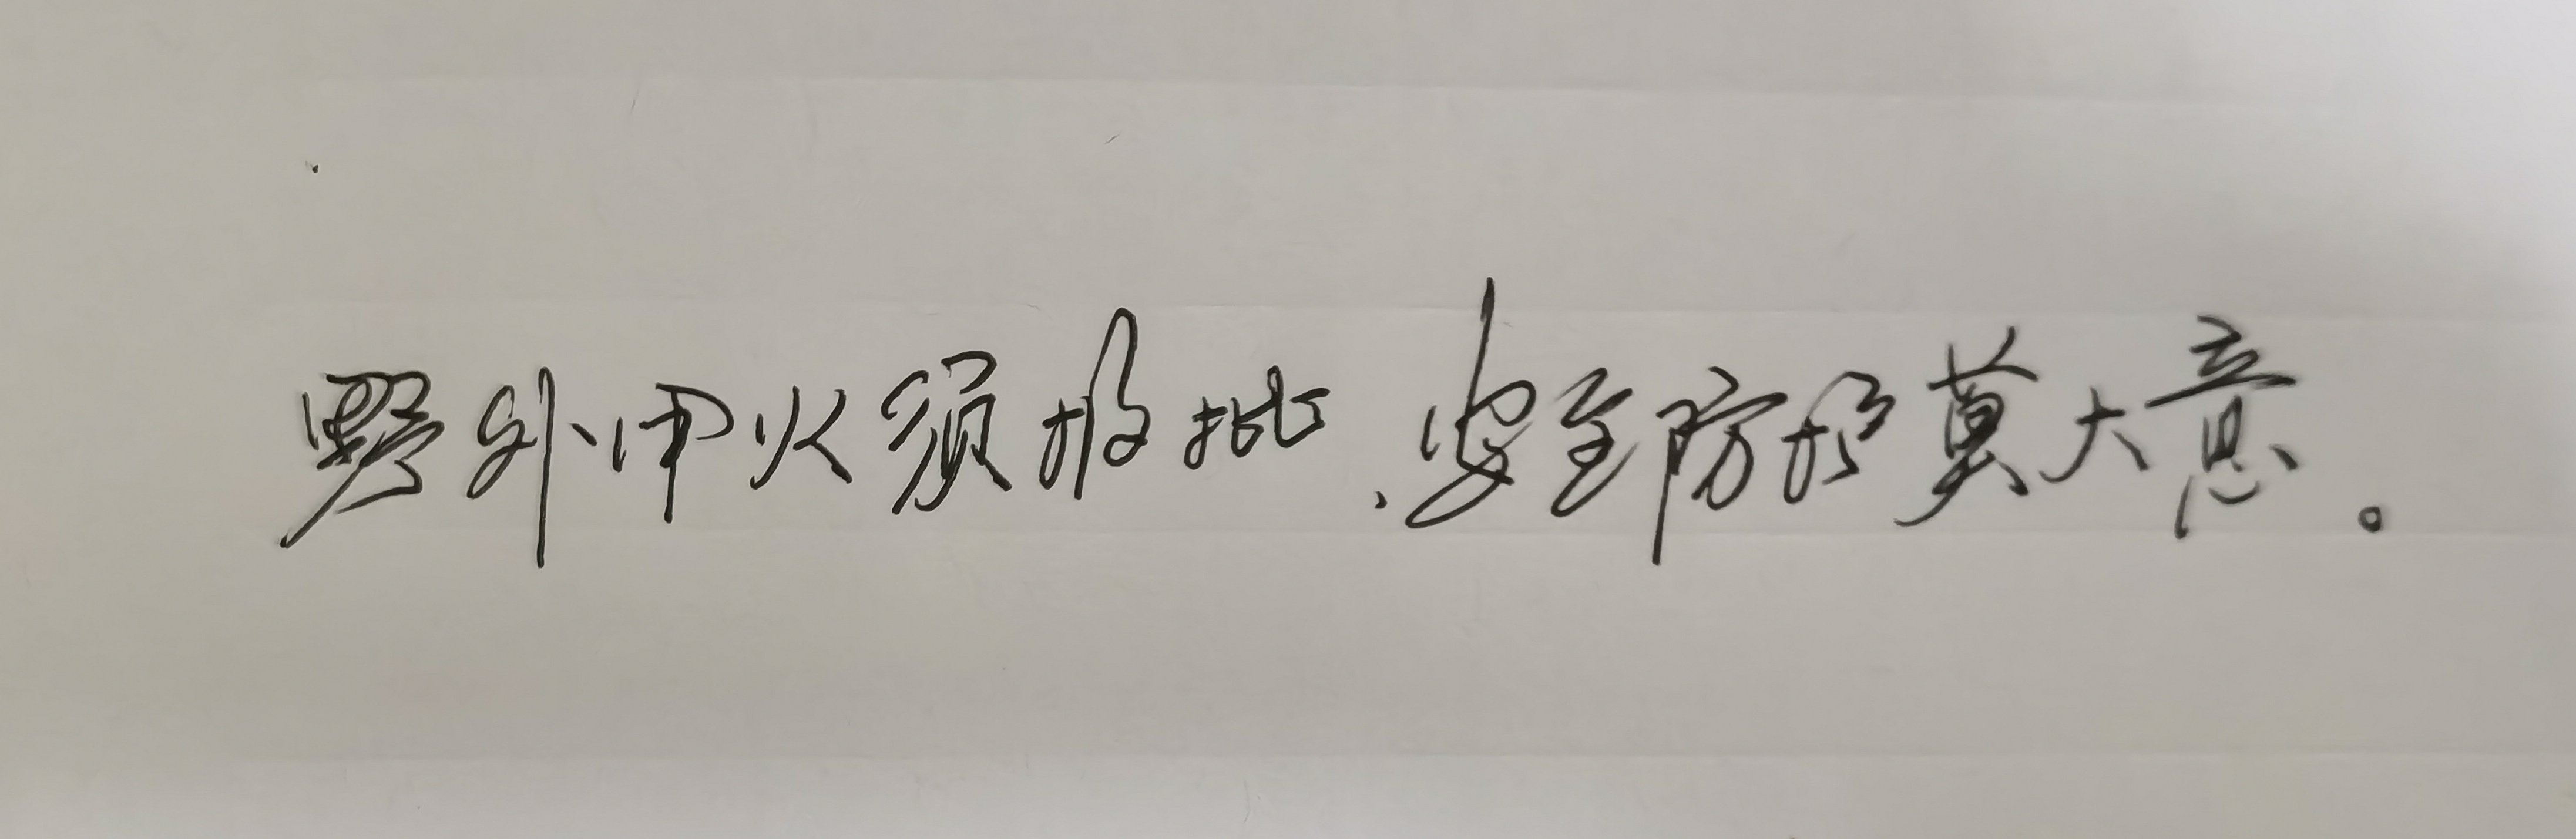 野外用火须报批,安全防护莫大意。